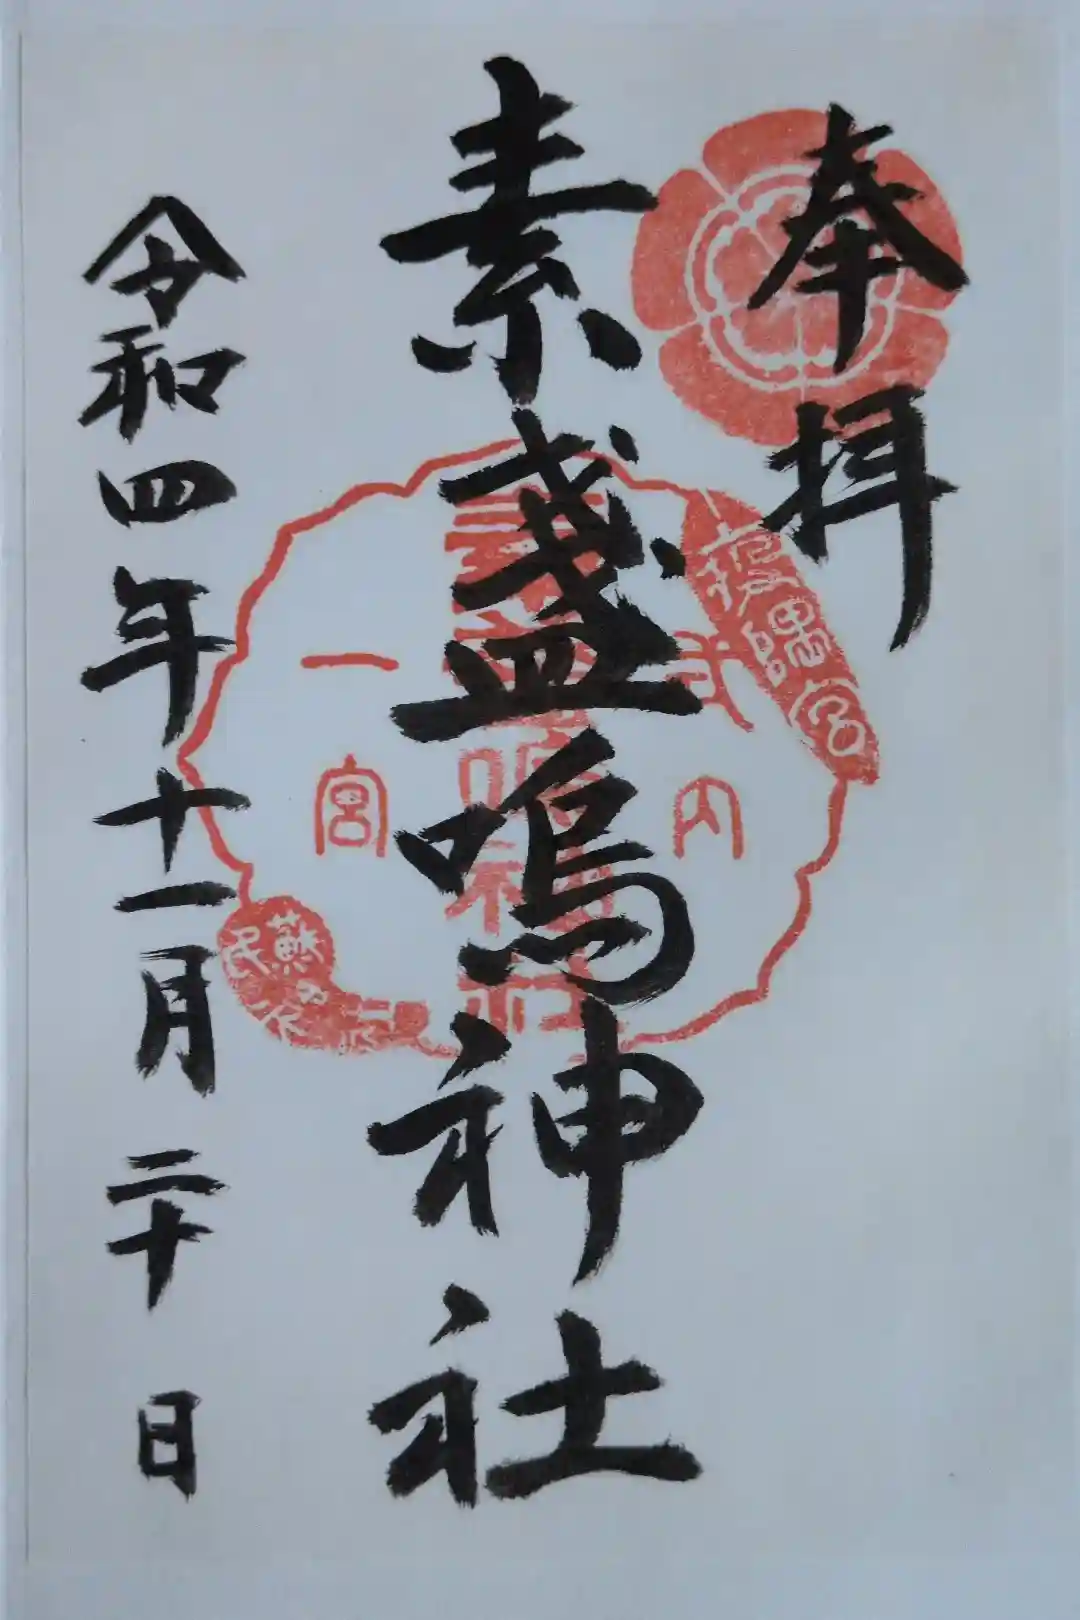 奉拝
素盞嗚神社
令和四年十一月二十日
一宮
蘇民